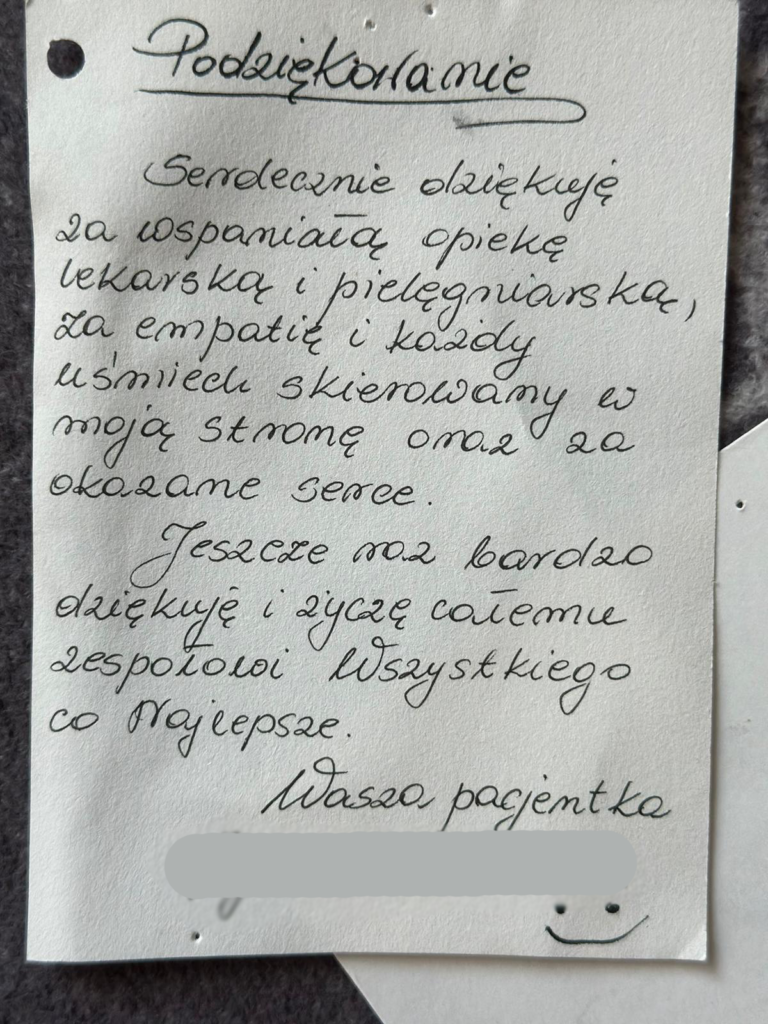 Podziękowanie
Serdecznie dziękuję
za wspaniałą opiekę
lekarską i pielęgniarską,
za empatię i każdy
uśmiech skierowany w
moją stronę oraz za
okazane serce.
Jeszcze raz bardzo
dziękuję i życzę całemu
zespołowi Wszystkiego
co Najlepsze.
Wasza pacjentka